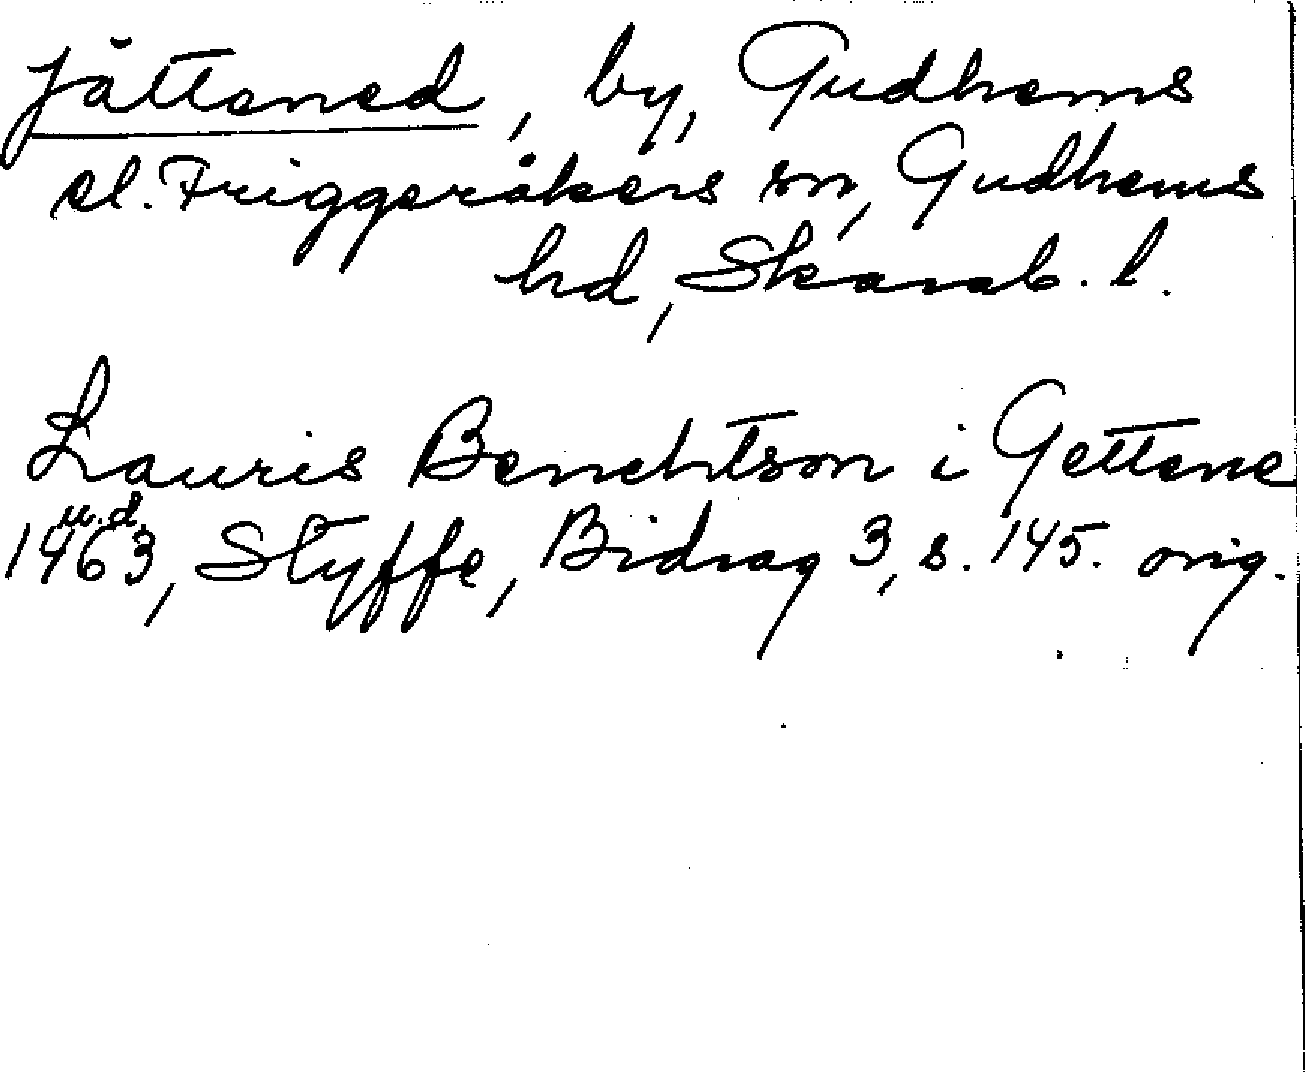 Jättened, by, Gudhems
el. Friggeråkers sn, Gudhems
hd, Skarab. l.
Lauris Benchtson i Gettene
u.d.
1463, Styffe, Bidrag 3, s. 145. orig.